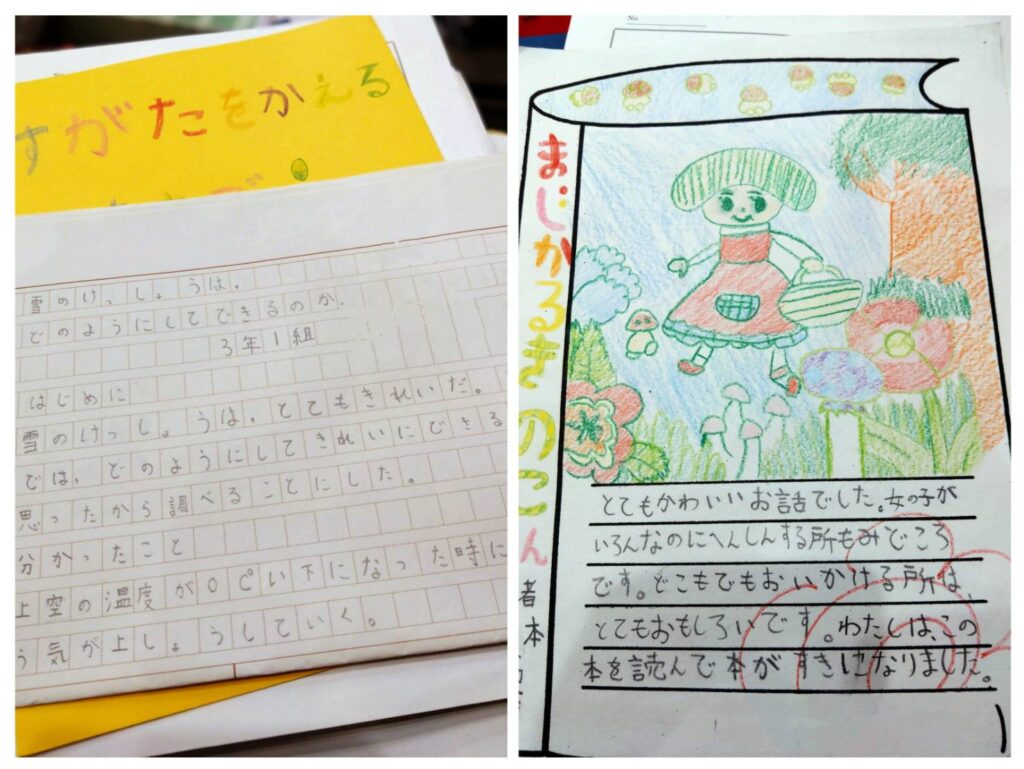 すがたをかえる
雪のけっしょうは、
どのようにしてできるのか。
3年1組
はじめに
雪のけっしょうは、とてもきれいだ。
では、どのようにしてきれいにできる
思ったから調べることにした。
分かったこと
上空の温度が0℃い下になった時に
気が上しょうしていく。
No.
まじかるきのこん
者本
とてもかわいいお話でした。女の子が
いろんなのにへんしんする所もみどころ
です。どこもでもおいかける所は、
とてもおもしろいです。わたしは、この
本を読んで本がすきになりました。